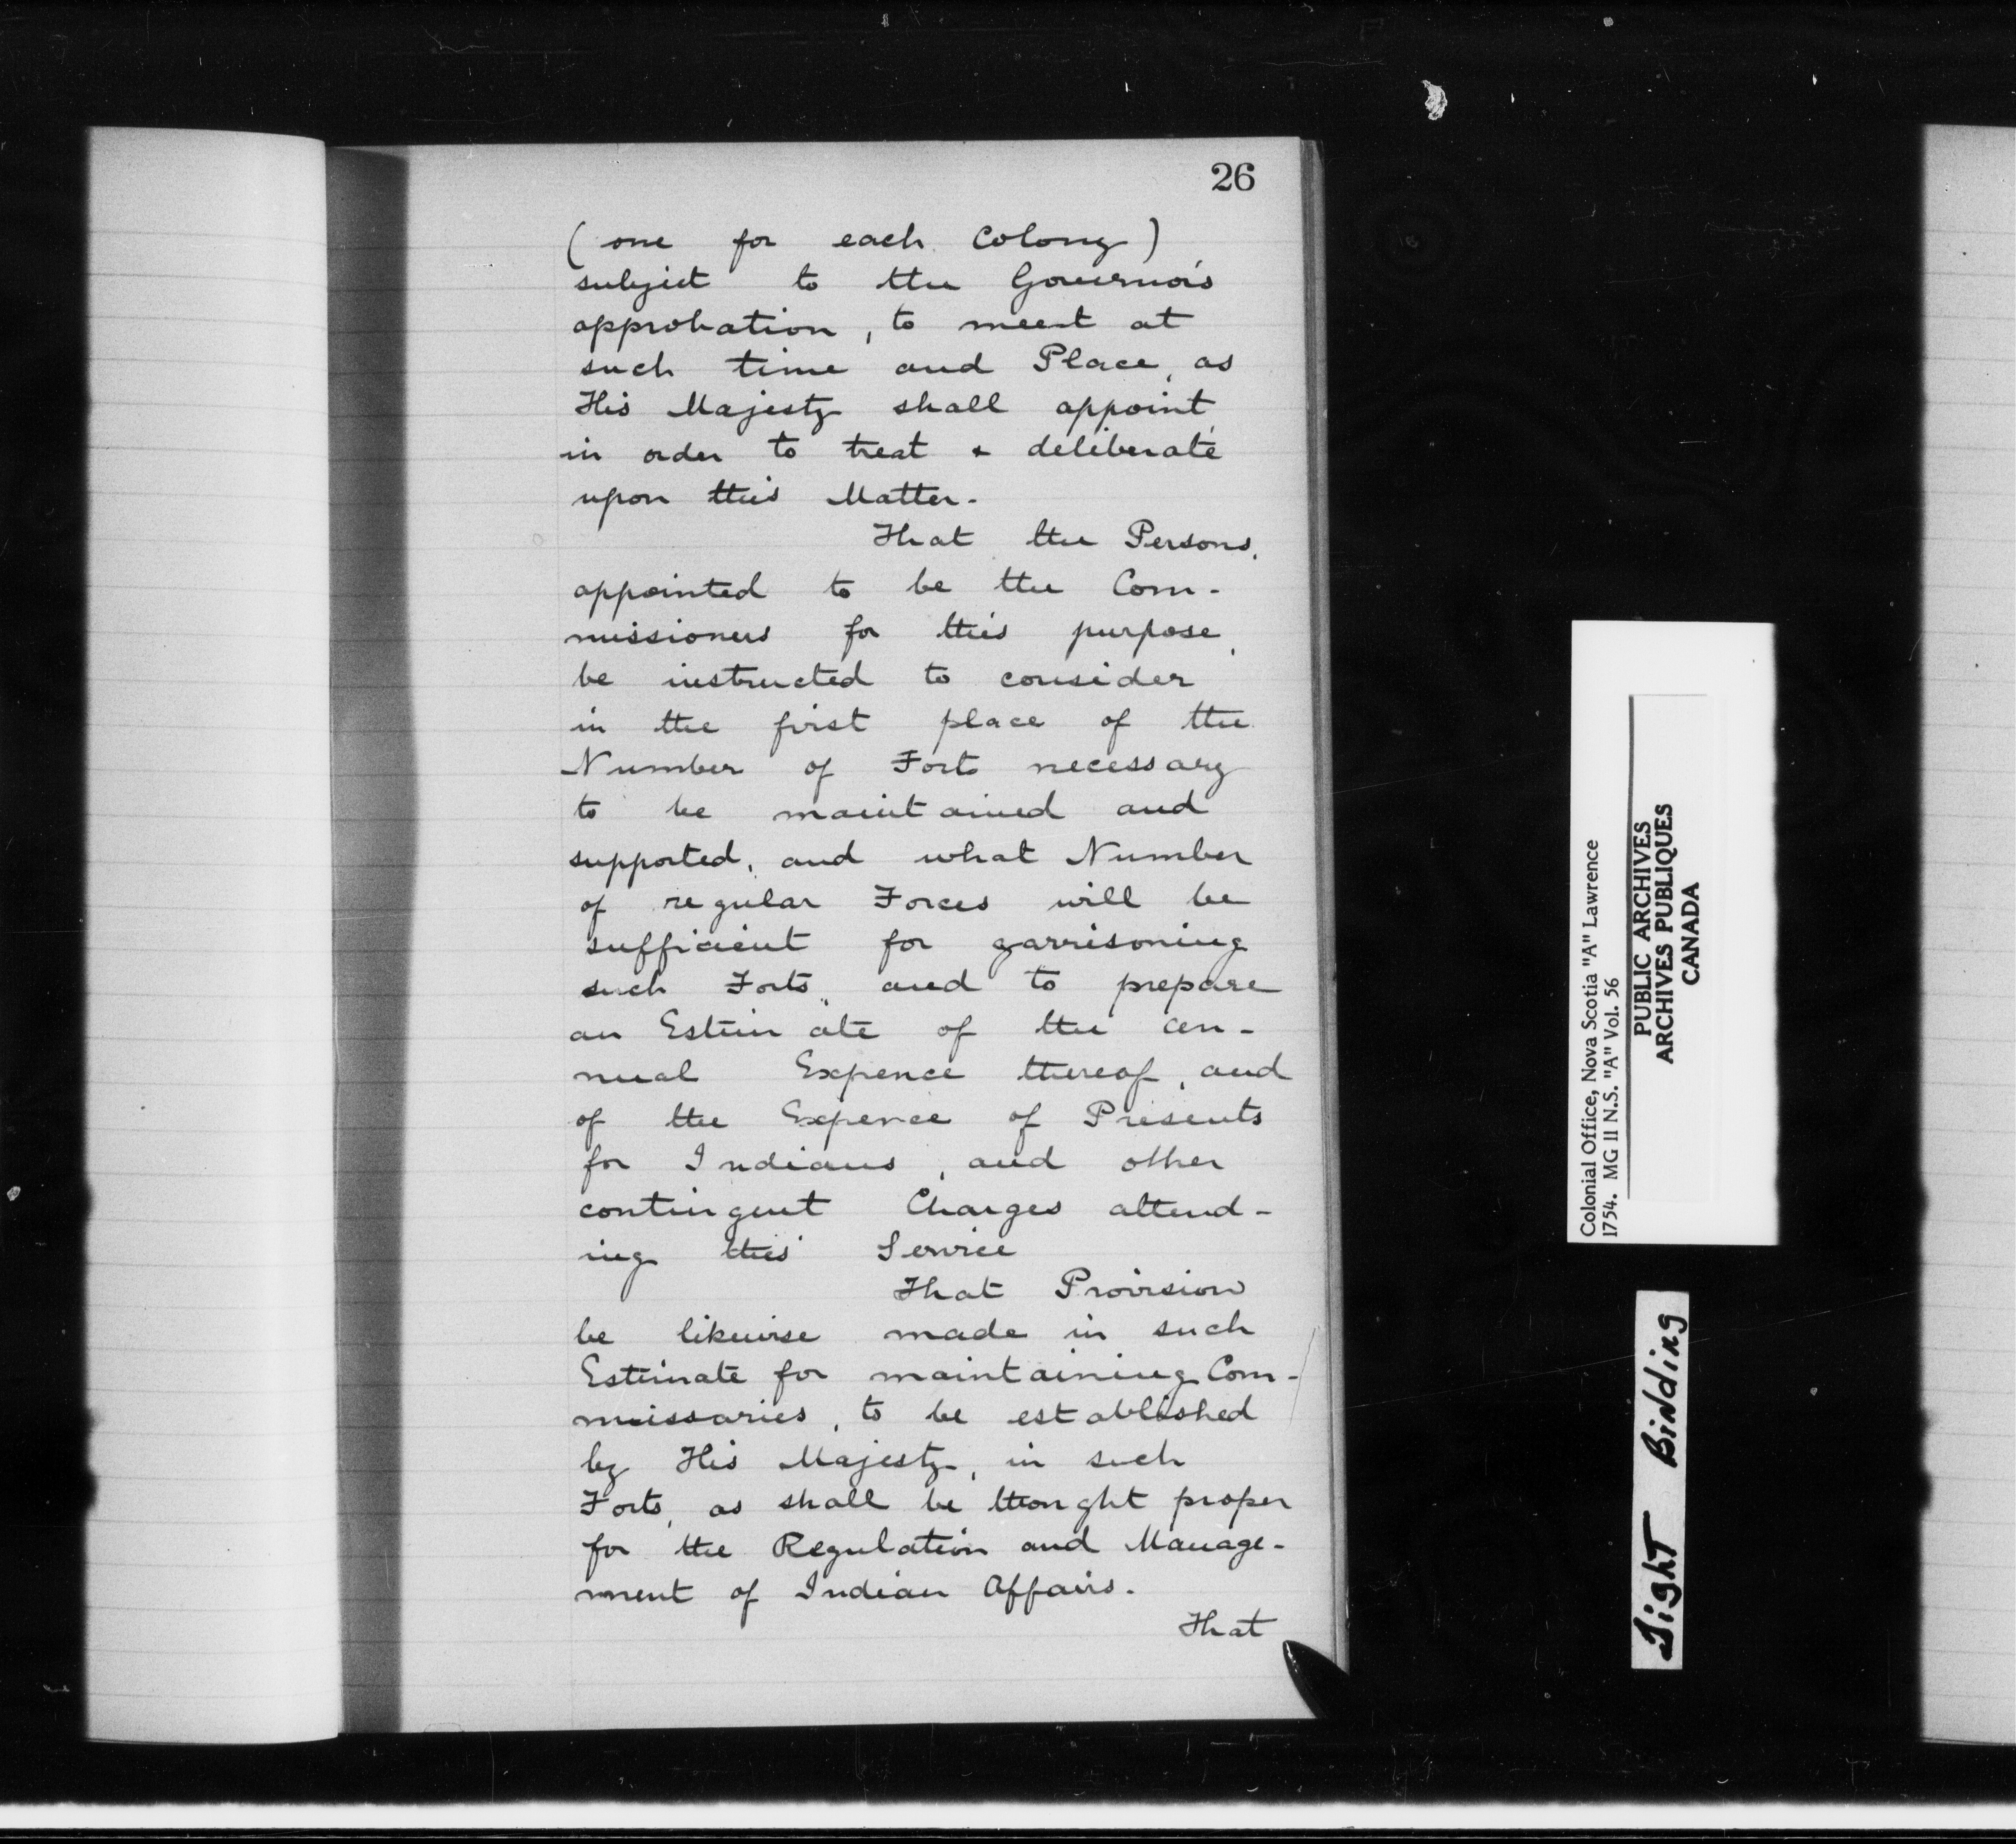 26
(one for each Colony)
subject to the Governor's
approbation, to meet at
such time and Place, as
His Majesty shall appoint,
in order to treat & deliberate
upon this Matter.
That the Persons,
appointed to be the Com-
missioners for this purpose,
be instructed to consider
in the first place of the
Number of Forts necessary
to be maintained and
supported, and what Number
of regular Forces will be
sufficient for garrisoning
such Forts, and to prepare
an Estimate of the an-
nual Expence thereof, and
of the Expence of Presents
for Indians, and other
contingent Charges attend-
ing this Service
That Provision
be likewise made in such
Estimate for maintaining Com-
missaries, to be established
by His Majesty, in such
Forts, as shall be thought proper
for the Regulation and Manage-
ment of Indian Affairs.
That
Colonial Office, Nova Scotia "A" Lawrence
1754. MG II N.S. "A" Vol. 56
PUBLIC ARCHIVES
ARCHIVES PUBLIQUES
CANADA
Tight Binding